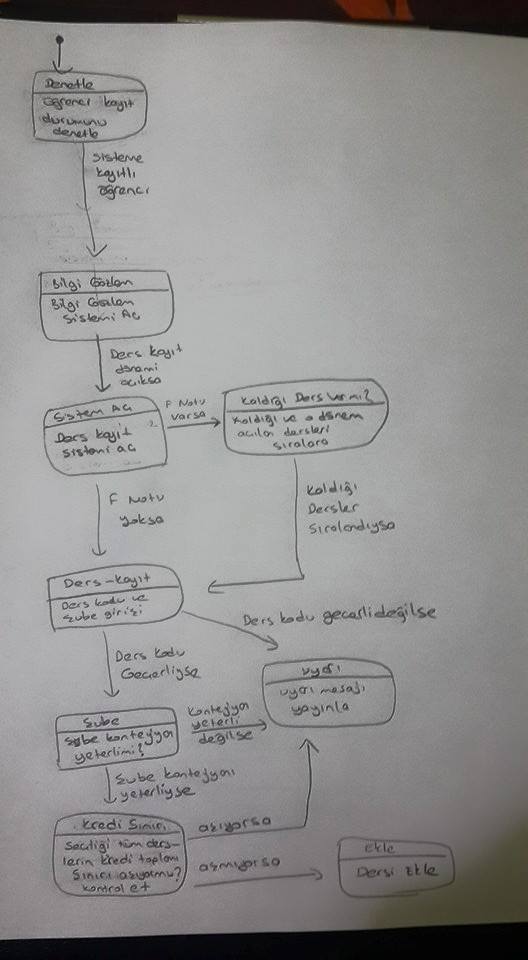 Denetle
öğrenci kayıt
durumunu
denetle
sisteme
kayıtlı
öğrenci
Bilgi Gözlem
Bilgi Gözlem
Sistemi Aç
Ders kayıt
dönemi
açıksa
Sistem Aç
Ders kayıt
sistemi aç
F Notu
varsa
Kaldığı Ders Var mı?
Kaldığı ve o dönem
açılan dersleri
sırala
F Notu
yoksa
Kaldığı
Dersler
Sıralandıysa
Ders-kayıt
Ders kodu ve
şube girişi
Ders kodu geçerli değilse
Ders kodu
Geçerliyse
uyarı
uyarı mesajı
yayınla
Şube
Şube kontejyan
yeterlimi?
kontejyan
yeterli
değilse
Şube kontejyanı
yeterliyse
Kredi Sınırı
Seçtiği tüm ders-
lerin kredi toplamı
Sınırı aşıyormu?
kontrol et
aşıyorsa
aşmıyorsa
Ekle
Dersi Ekle